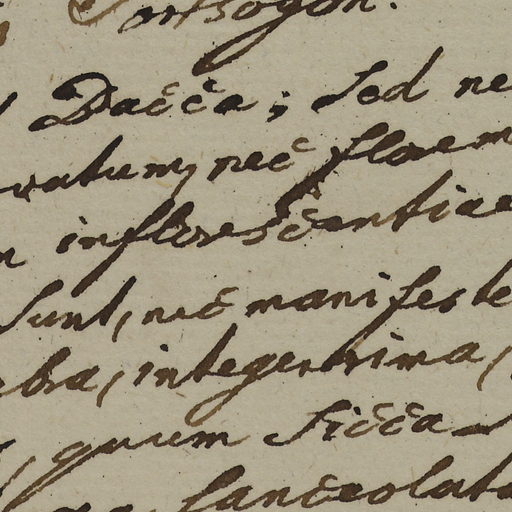 Dacca; sed ne
vatum, nec florem
inflorescentiae
sunt, nec manifeste
bra, integerrima,
quum sicca
lanceolata